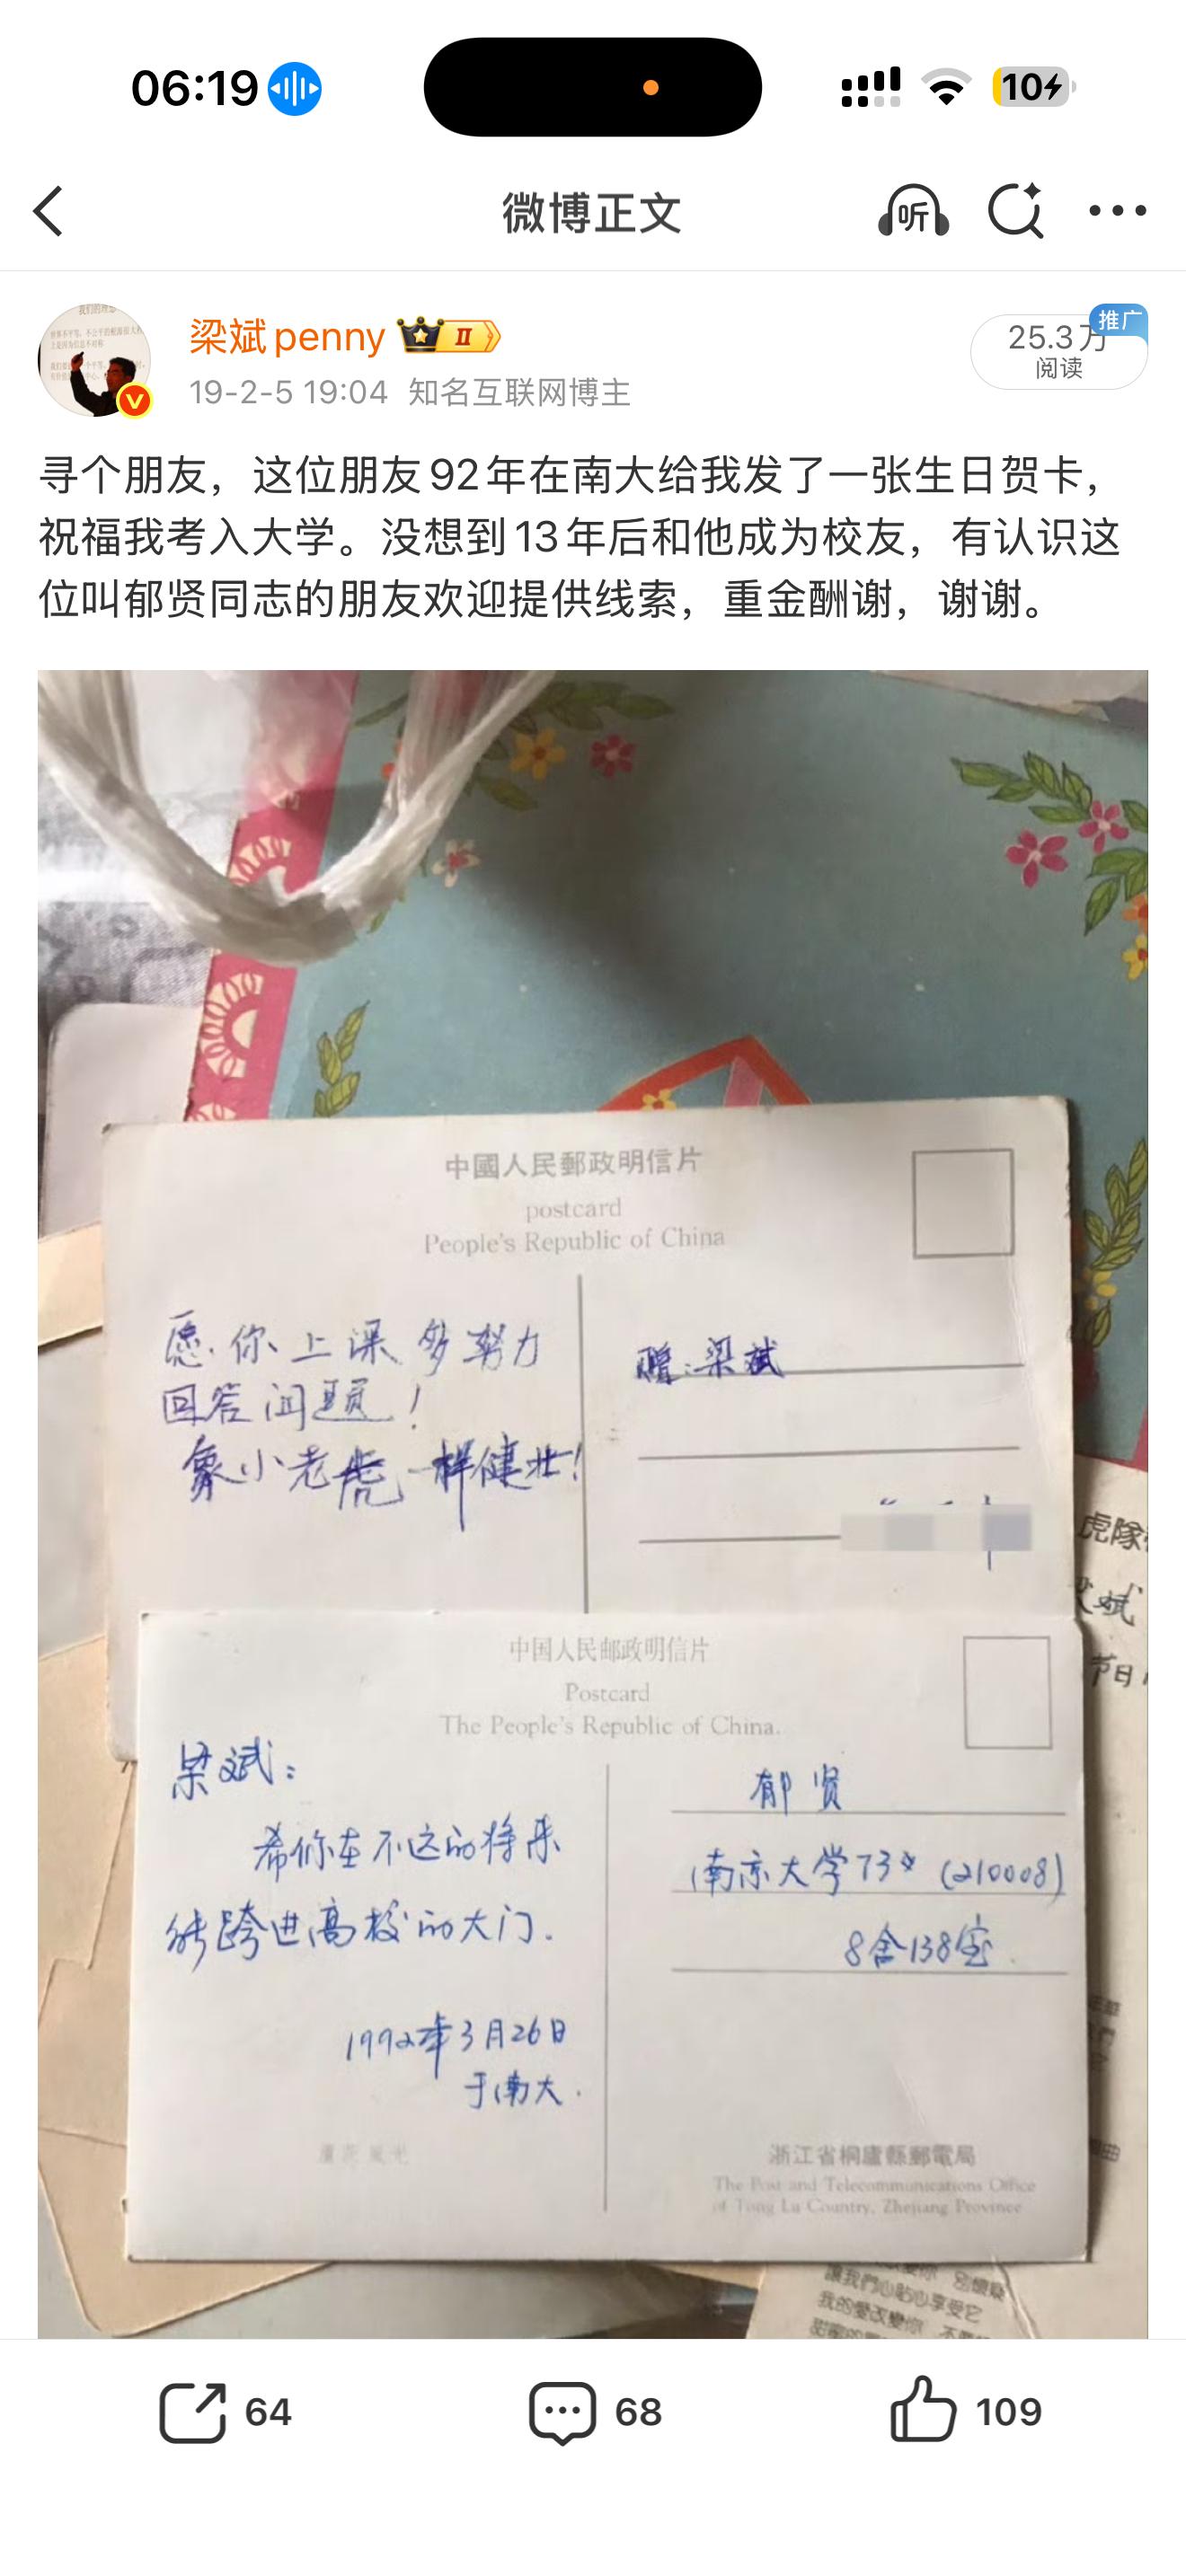 06:19
10
微博正文
听
梁斌penny
II
19-2-5 19:04 知名互联网博主
25.3万
阅读
推广
寻个朋友，这位朋友92年在南大给我发了一张生日贺卡，
祝福我考入大学。没想到13年后和他成为校友，有认识这
位叫郁贤同志的朋友欢迎提供线索，重金酬谢，谢谢。
中國人民郵政明信片
postcard
People's Republic of China
愿你上课多努力
回答问题！
象小老虎一样健壮！
赠：梁斌
虎隊
斌
节日
中国人民邮政明信片
Postcard
The People's Republic of China.
梁斌：
希你在不远的将来
能跨进高校的大门.
1992年3月26日
于南大.
郁贤
南京大学73# (210008)
8舍138室.
浙江省桐廬縣郵電局
The Post and Telecommunications Office
of Tong Lu Country, Zhejiang Province
讓我們心貼心享受它
我的愛改變你
64
68
109